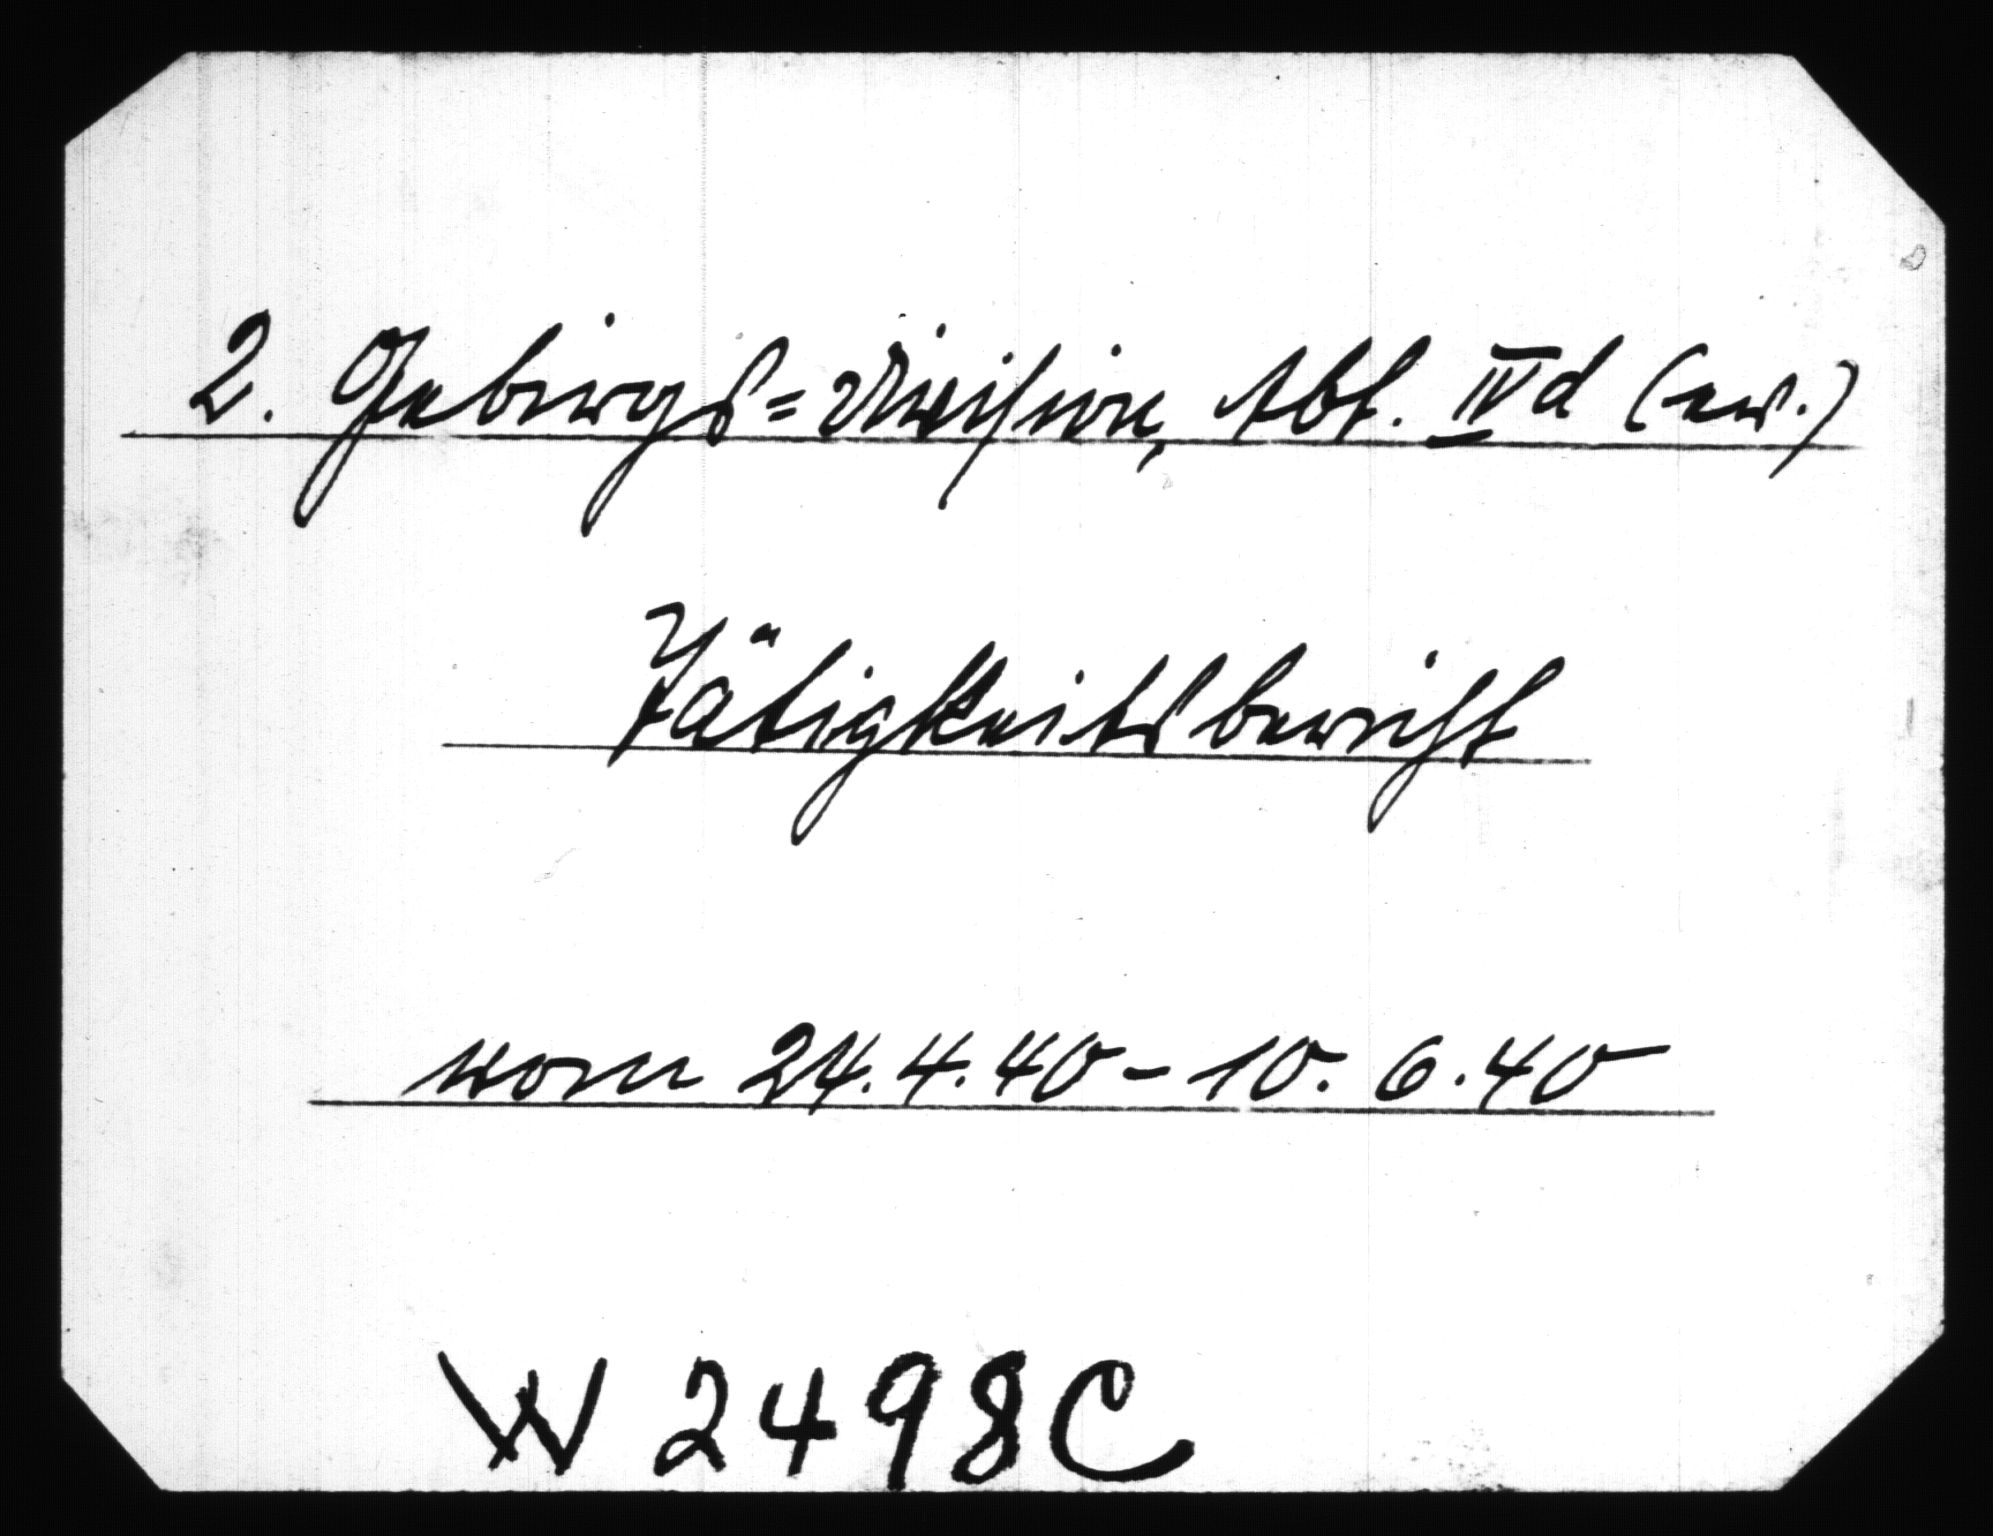 2. Gebirgs=Division, Abt. IVd (ev.)
Tätigkeitsbericht
vom 24.4.40 - 10.6.40
W 2498C